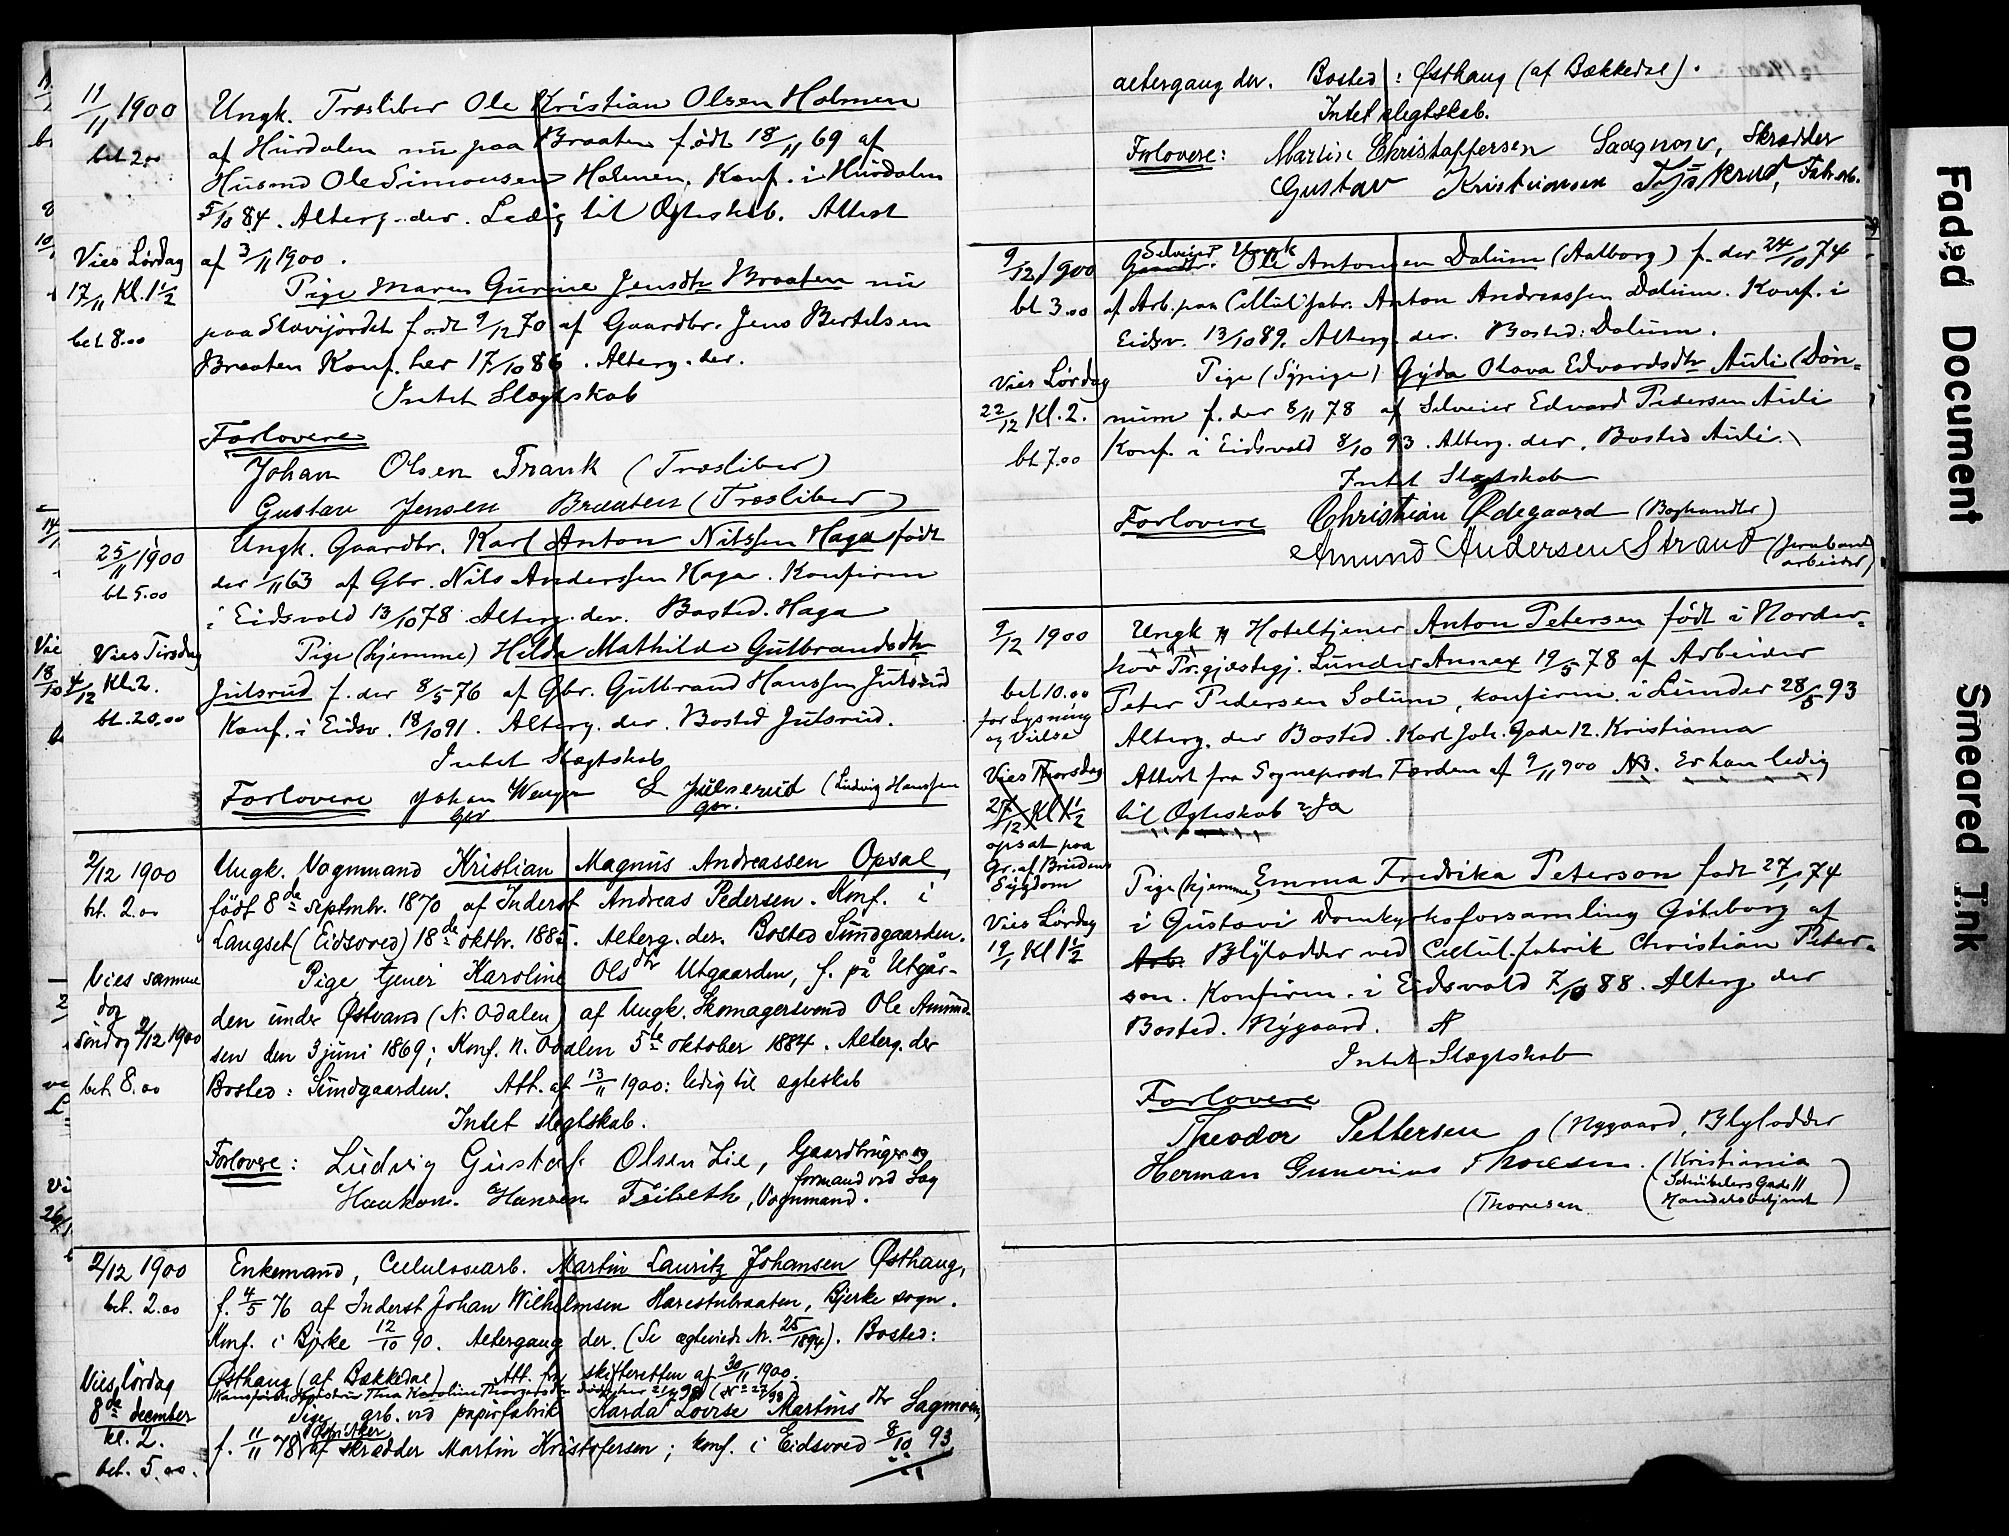 11/11 1900
bet 2.00
Ungk. Træsliber Ole Kristian Olsen Holmen
af Hurdalen nu paa Braaten født 18/11 69 af
Husmd Ole Simonsen Holmen. Konf. i Hurdalen
5/10 84. Alterg. der. Ledig til Ægteskab. Attest
af 3/11 1900.
Vies Lørdag
17/11 Kl. 1 1/2
bet 8.00
Pige Maren Gurine Jensdtr Braaten nu
paa født 9/12 70 af Gaardbr. Jens Bertelsen
Braaten Konf. her 17/10 86. Alterg. der.
Intet Slægtskab
Forlovere
Johan Olsen Frank (Træsliber)
Gustav Jensen Braaten (Træsliber)
25/11 1900
bt 5.00
Ungk. Gaardbr. Karl Anton Nilssen Haga født
der 1/11 63 af Gbr. Nils Anderssen Haga. Konfirm
i Eidsvold 13/10 78. Alterg. der. Bosted. Haga
Vies Tirsdag
4/12 Kl. 2.
bt. 20.00
Pige (hjemme) Helda Mathilde Gulbrandsdtr
Julsrud f. der 8/5 76 af Gbr. Gulbrand Hanssen Julsrud
Konf. i Eidsv. 18/10 91. Alterg. der. Bosted Julsrud.
Intet Slægtskab
Forlovere Johan Wenger L Julserud (Ludvig Hanssen
gbr gbr.
2/12 1900
bet. 2.00
Ungk. Vognmand Kristian Magnus Andreassen Opsal,
født 8de septmbr. 1870 af Inderst Andreas Pedersen. Konf. i
Langset (Eidsvold) 18de oktbr. 1885. Alterg. der. Bosted Sundgaarden.
Vies samme
dag
søndag 2/12 1900
bet. 8.00
Pige, tjener Karoline Olsdtr Utgaarden, f. på Utgår-
den under Østvand (N. Odalen) af Ungk. Skomagersvend Ole Amund-
sen den 3 juni 1869; Konf. N. Odalen 5te oktober 1884. Alterg. der
Bosted: Sundgaarden. Att. af 13/11 1900: ledig til ægteskab
Intet slegtskab.
Forlovere: Ludvig Gustaf. Olsen Lie, Gaardbruger og
formand ved Sag
Haakon. Hansen Tribeth, Vognmand.
2/12 1900
bet. 2.00
Enkemand, Cellulosearb. Martin Lauritz Johansen Østhaug,
f. 4/5 76 af Inderst Johan Wilhelmsen Harestubraaten, Bjerke sogn.
Konf. i Bjerke 12/10 90. Altergang der. (Se ægteviede Nr. 25/1894). Bosted:
Vies lørdag
8de december
kl. 2.
bet. 5.00.
Østhaug (af Bækkedal) Att. fra skifteretten af 30/11 1900.
Pige, arb. ved papirfabrik Karda Lovise Martinsdtr Sagmoen,
f. 11/11 78 af skrædder Martin Kristofersen; konf. i Eidsvold 8/10 93
altergang der. Bosted: Østhaug (af Bækkedal).
Intet slegtskab.
Forlovere: Martin Christaffersen Saagmoen, Skrædder
Gustav Kristiansen , Fabr.arb.
9/12 1900
bt 3.00
Selveier Ungk
Gaardbr. Ole Antonsen Dalum (Aalborg) f. der 24/10 74
af Arb. paa Cellul.fabr. Anton Andreassen Dalum. Konf. i
Eidsv. 13/10 89. Alterg. der. Bosted: Dalum.
Vies Lørdag
22/12 Kl. 2.
bt 7.00
Pige (Sypige) Gyda Olava Edvardsdtr Auli (Døn-
num f. der 8/11 78 af Selveier Edvard Pedersen Auli
Konf. i Eidsvold 8/10 93. Alterg. der. Bosted Auli.
Intet Slægtskab
Forlovere Christian Ødegaard (Boghandler)
Amund Andersen Strand (Jernbane
arbeider)
9/12 1900
bet 10.00
for Lysning
og Vielse
Ungk Hoteltjener Anton Petersen født i Norder-
hov Pr.gj. Lunder Annex 19/5 78 af Arbeider
Peter Pedersen Solum, konfirm. i Lunder 28/5 93
Alterg. der Bosted. Karl Joh. Gade 12. Kristiania
Attest fra Sogneprest Færden af 9/11 900 NB. Er han ledig
til Ægteskab? Ja
Vies Thorsdag
27/12 Kl 1 1/2
opsat paa
Gr. af Brudens
Sygdom
Vies Lørdag
19/1 Kl 1 1/2
Pige (hjemme) Emma Fredrika Peterson født 27/1 74
i Gustavi Domkyrkoforsamling Göteborg af
Arb. Blylodder ved Cellul.fabrik Christian Peter-
son. Konfirm. i Eidsvold 7/10 88. Alterg. der
Bosted. Nygaard.
Intet Slægtskab
Forlovere
Theodor Pettersen (Nygaard, Blylodder
Herman Gunerius Thoresen. (Kristiania
Schübelers Gade 11
(Thoresen Handelsbetjent)
Faded Document
Smeared Ink